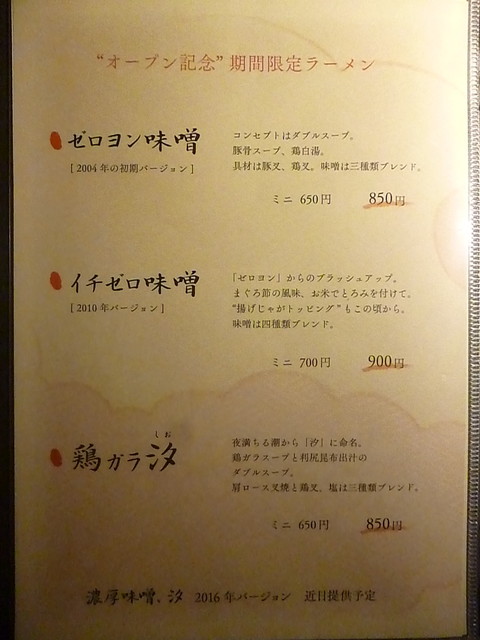 “オープン記念”期間限定ラーメン
ゼロヨン味噌
[2004年の初期バージョン]
コンセプトはダブルスープ。
豚骨スープ、鶏白湯。
具材は豚叉、鶏叉。味噌は三種類ブレンド。
ミニ 650円 850円
イチゼロ味噌
[2010年バージョン]
「ゼロヨン」からのブラッシュアップ。
まぐろ節の風味、お米でとろみを付けて。
“揚げじゃがトッピング”もこの頃から。
味噌は四種類ブレンド。
ミニ 700円 900円
しお
鶏ガラ汐
夜満ちる潮から「汐」に命名。
鶏ガラスープと利尻昆布出汁の
ダブルスープ。
肩ロース叉焼と鶏叉、塩は三種類ブレンド。
ミニ 650円 850円
濃厚味噌、汐 2016年バージョン 近日提供予定